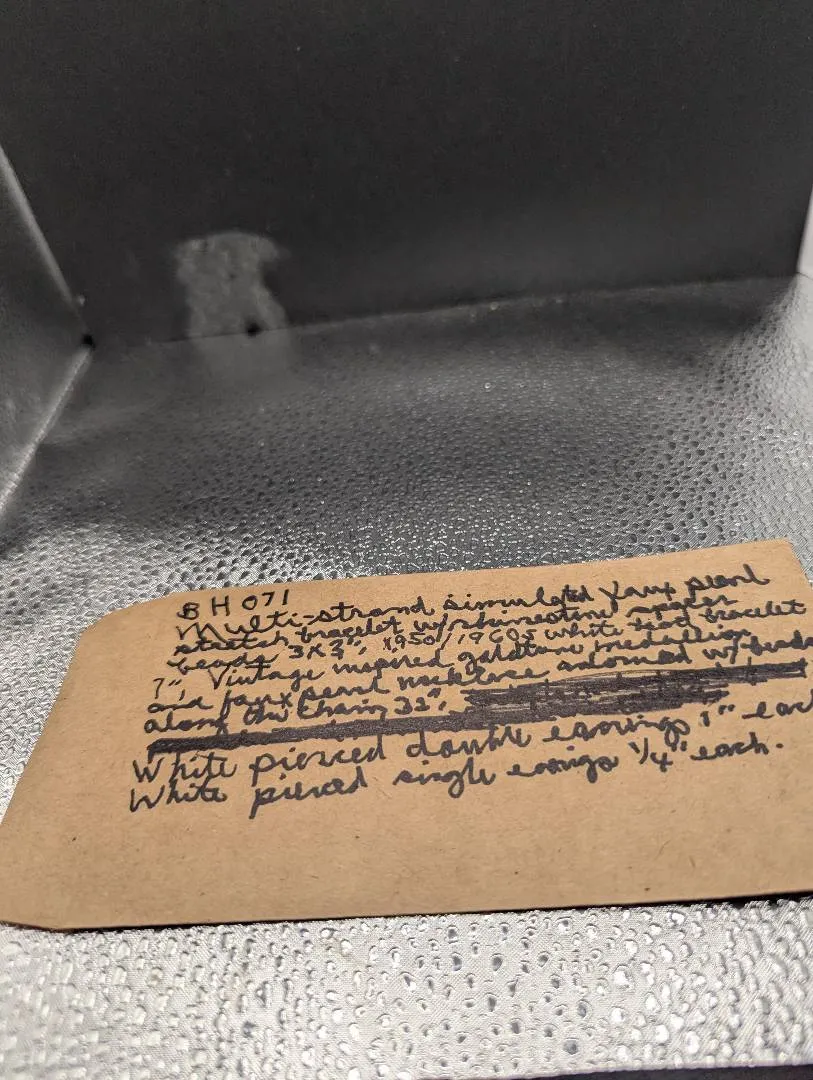 BH071
Multi-strand simulated faux pearl
stretch bracelet w/rhinestone spacer
beads 3x3", 1950/1960s white bracelet
7", Vintage inspired goldtone medallion
and faux pearl necklace adorned w/beads
along the chain 32",
White pierced double earrings 1" each
White pierced single earrings 1/4" each.